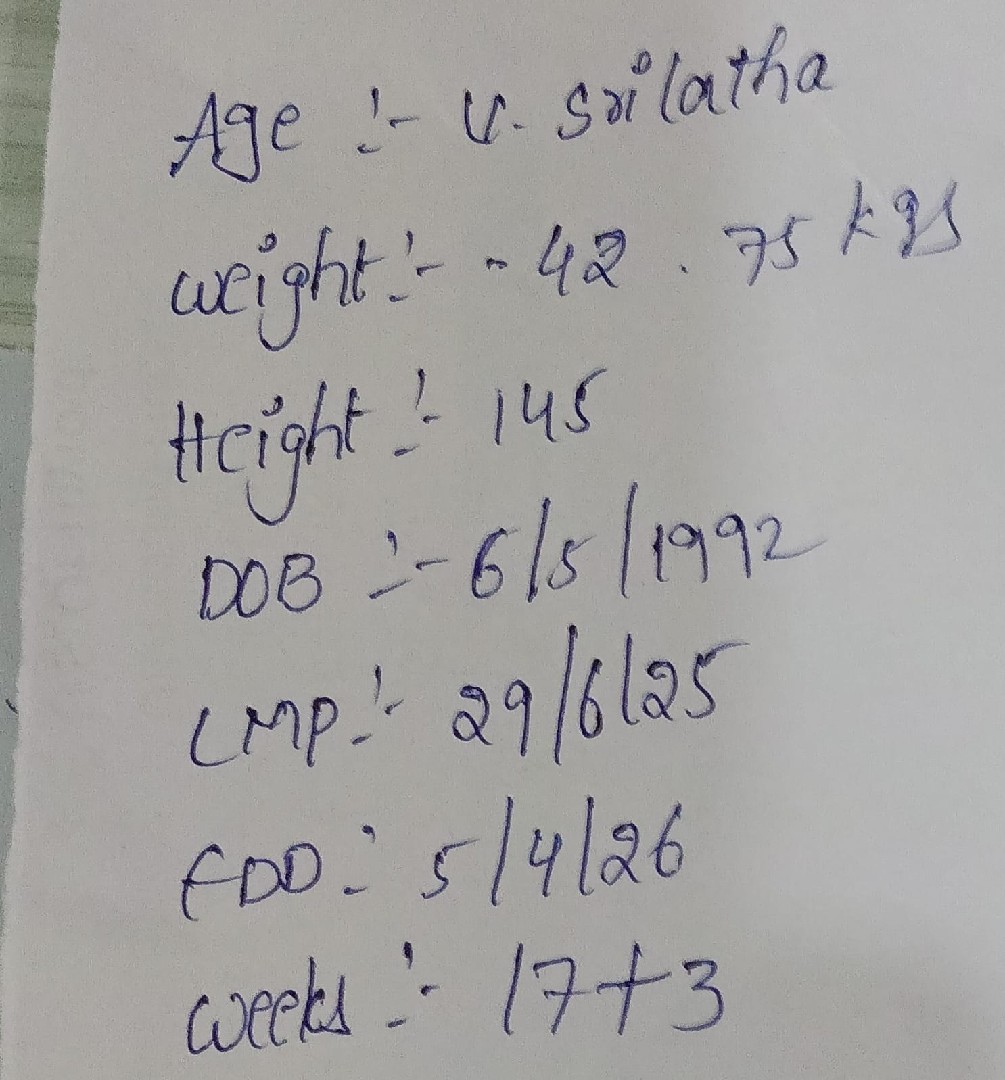 Age :- V. Srilatha
weight :- - 42 . 75 kgs
Height :- 145
DOB :- 6/5/1992
LMP :- 29/6/25
EDD :- 5/4/26
weeks :- 17+3